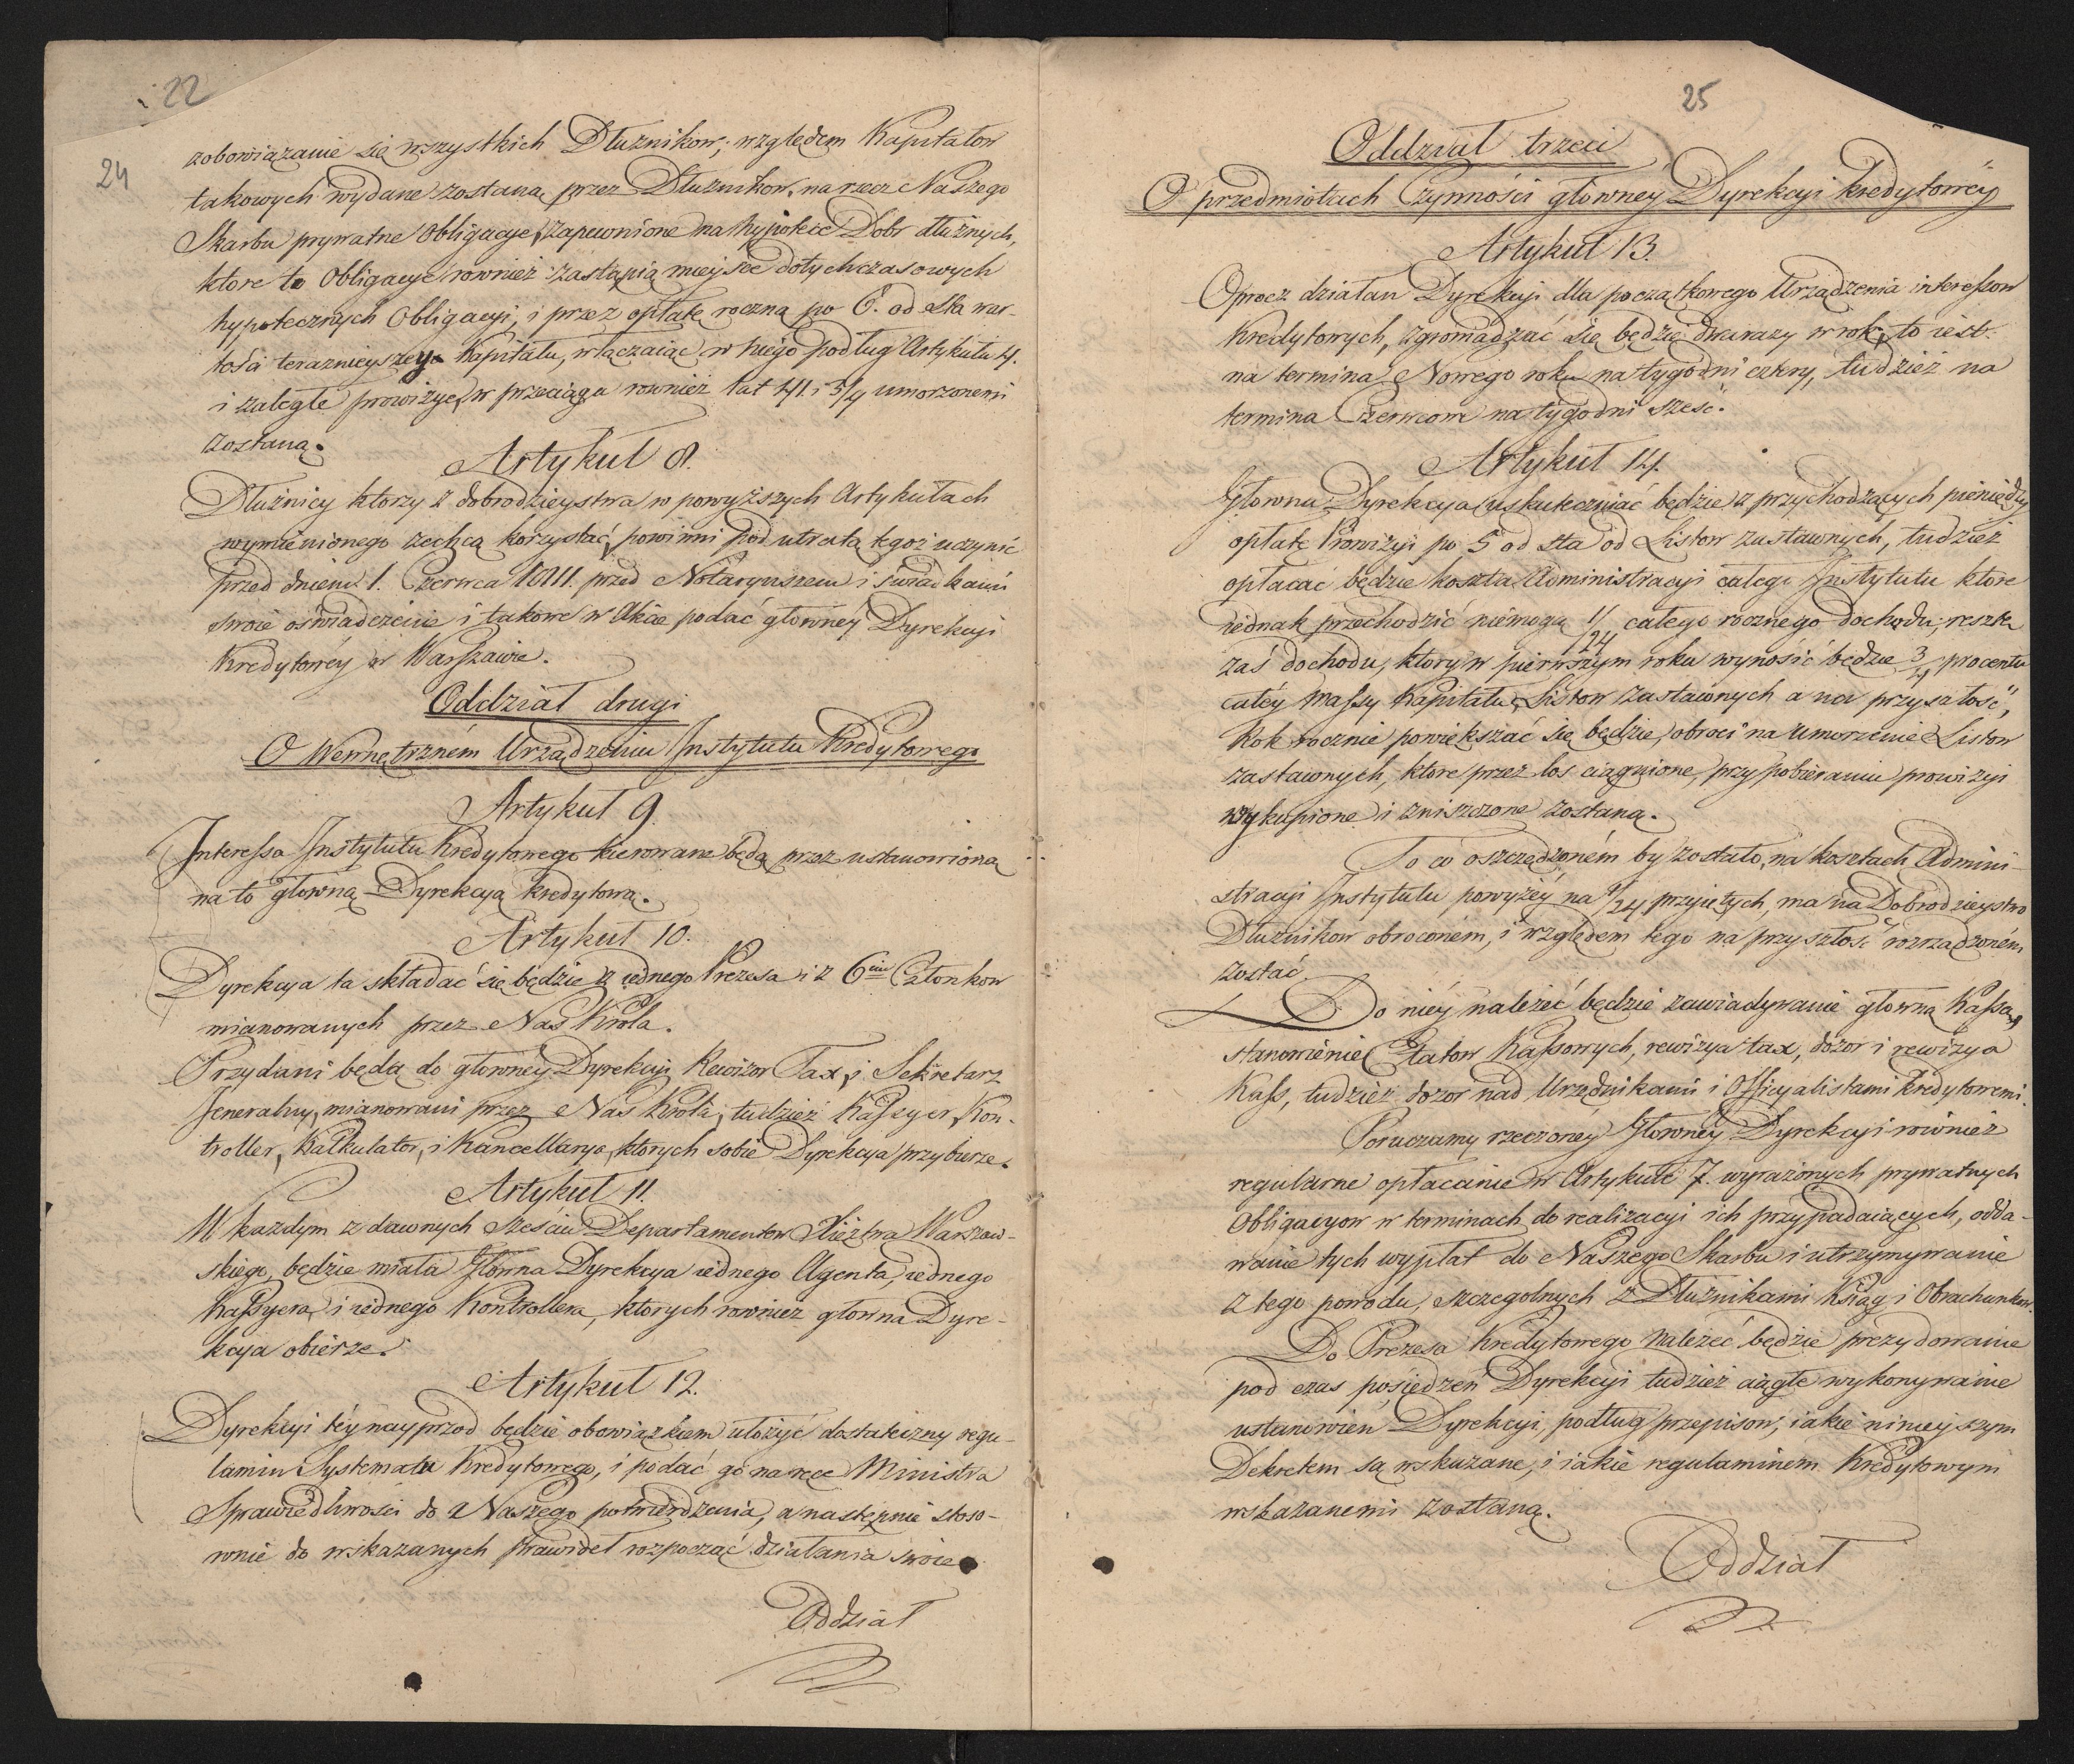 22
24
zobowiązanie się wszystkich Dłużnikow; względem Kapitałow
takowych wydane zostaną przez Dłużnikow, na rzecz Naszego
Skarbu prywatne Obligacye, zapewnione na hypotece Dobr dłużnych,
ktore to Obligacye rownież zastąpią mieysce dotychczasowych
hypotecznych Obligacyi, i przez opłatę roczną po 6. od sta war-
tości teraznieyszego Kapitału, włączaiąc w niego podług Artykułu 4.
i zaległe prowizye, w przeciągu rownież lat 41. i 3/4 umorzonemi
zostaną.
Artykuł 8.
Dłużnicy ktorzy z dobrodzieystwa w powyższych Artykułach
wymienionego zechcą korzystać, powinni pod utratą tegoż uczynić
przed dniem 1. Czerwca 1811. przed Notaryuszem i świadkami
swoie oświadczenie i takowe w Akcie podać głowney Dyrekcyi
Kredytowéy w Warszawie.
Oddział drugi
O Wewnętrzném Urządzeniu Instytutu Kredytowego
Artykuł 9.
Interessa Instytutu Kredytowego kierowane będą przez ustanowioną
na to głowną Dyrekcyą kredytową.
Artykuł 10.
Dyrekcya ta składać się będzie z iednego Prezesa i z 6ciu Członkow
mianowanych przez Nas Krola.
Przydani będą do głowney Dyrekcyi Rewizor Tax, i Sekretarz
Jeneralny, mianowani przez Nas Krola, tudzież Kassyer, Kon-
troller, Kalkulator, i Kancellarya, ktorych sobie Dyrekcya przybierze.
Artykuł 11.
W każdym z dawnych sześciu Departamentow Xięztwa Warszaw-
skiego, będzie miała Głowna Dyrekcya iednego Agenta, iednego
Kassyera, i iednego Kontrollera, ktorych rownież głowna Dyre-
kcya obierze.
Artykuł 12.
Dyrekcyi téy nayprzod będzie obowiązkiem ułożyć dostateczny regu-
lamin Systematu Kredytowego, i podać go na ręce Ministra
Sprawiedliwości do Naszego potwierdzenia, a następnie stoso-
wnie do wskazanych prawideł rozpocząć działania swoie.
Oddział
25
Oddział trzeci
O przedmiotach Czynności głownéy Dyrekcyi kredytowéy
Artykuł 13.
Oprocz działań Dyrekcyi dla początkowego Urządzenia interessow
Kredytowych, zgromadzać się będzie dwa razy w rok, to iest.
na termina Nowego roku na tygodni cztery, tudzież na
termina Czerwcowe na tygodni sześć.
Artykuł 14.
Głowna Dyrekcya uskuteczniać będzie z przychodzących pieniędzy
opłatę Prowizyi po 5 od sta od Listow zastawnych, tudzież
opłacać będzie koszta Administracyi całego Instytutu ktore
iednak przechodzić niemogą 1/24 całego rocznego dochodu; resztę
zaś dochodu, ktory w pierwszym roku wynosić będzie 3/4 procentu
całéy Massy Kapitału, Listow zastawnych a na przyszłość,
Rok rocznie powiększać się będzie, obroci na umorzenie Listow
zastawnych, ktore przez los ciągnione, przy pobieraniu prowizyi
wykupione i zniszczone zostaną.
To co oszczędzoném by zostało, na kosztach Admini-
stracyi Instytutu powyżéy na 1/24 przyiętych, ma na Dobrodzieystwo
Dłużnikow obroconém, i względem tego na przyszłość rozrządzoném
zostać.
Do niéy należeć będzie zawiadywanie głowną Kassą,
stanowienie Etatow Kassowych, rewizya tax, dozor i rewizya
Kass, tudzież dozor nad Urzędnikami i Officyalistami kredytowemi.
Poruczamy rzeczoney Głownéy Dyrekcyi rownież
regularne opłacanie w Artykule 7. wyrażonych prywatnych
Obligacyow w terminach do realizacyi ich przypadaiących, odda-
wanie tych wypłat do Naszego Skarbu i utrzymywanie
z tego powodu, szczegolnych z Dłużnikami Ksiąg i Obrachunkow.
Do Prezesa Kredytowego należeć będzie prezydowanie
pod czas posiedzeń Dyrekcyi tudzież ciągłe wykonywanie
ustanowień Dyrekcyi, podług przepisow, iakie ninieyszym
Dekretem są wskazane, i iakie regulaminem Kredytowym
wskazanemi zostaną.
Oddział